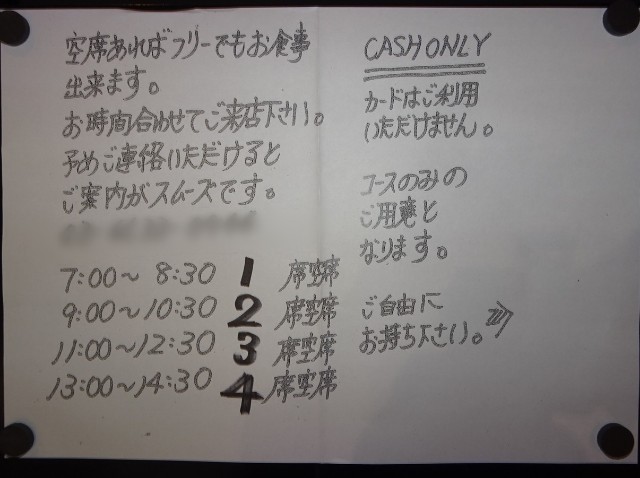 空席あればフリーでもお食事
出来ます。
お時間合わせてご来店下さい。
予めご連絡いただけると
ご案内がスムーズです。
7:00〜8:30 1 席空席
9:00〜10:30 2 席空席
11:00〜12:30 3 席空席
13:00〜14:30 4 席空席
CASH ONLY
カードはご利用
いただけません。
コースのみの
ご用意と
なります。
ご自由に
お持ち下さい。